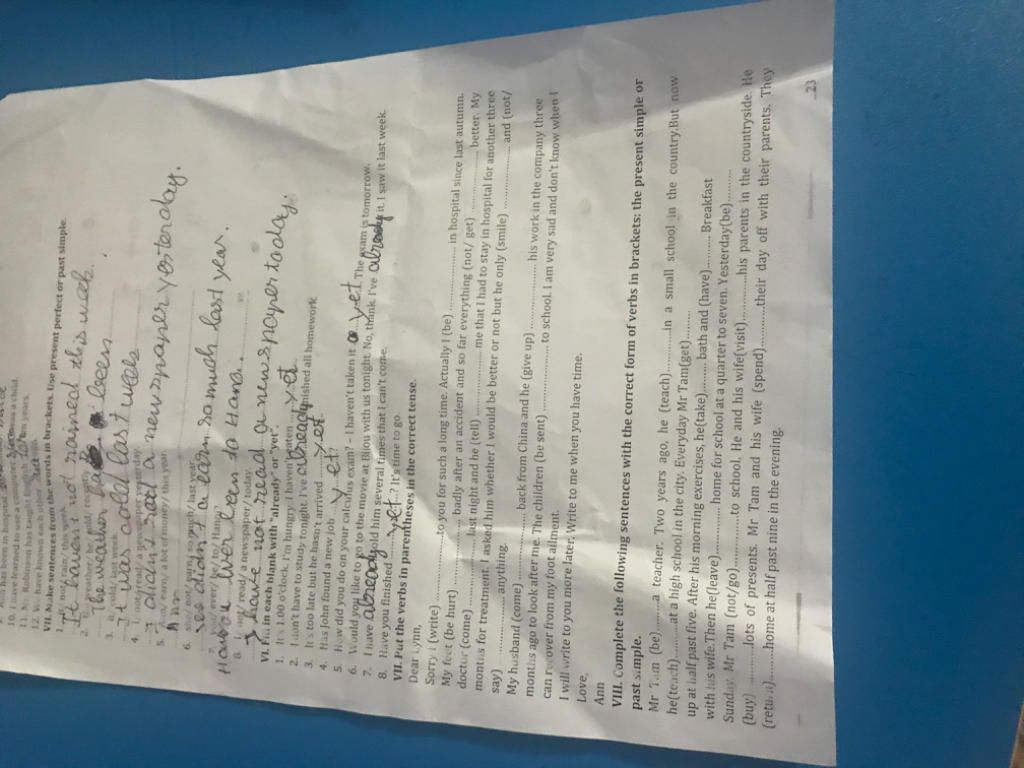 has been in hospital
10. I have learned to use a computer
11. Mr. Robinson has taught
12. We have known each other
VII. Make sentences from the words in brackets. Use present perfect or past simple.
1. it/ not/ rain/ this week
It haven't not rained this week.
The weather has been
3. it
It was cold last week
4. I/ not/ read/ a newspaper yesterday
I didn't read a newspaper yesterday.
5. Ann/ earn/ a lot of money/ this year.
Ann
6. she/ not/ earn so much/ last year.
see didn't a earn so much last year.
7. you/ ever/ be/ to/ Hang?
8. I/ not/ read/ a newspaper/ today.
I have not read a newspaper today.
VI. Fill in each blank with "already" or "yet".
1. It's 1.00 o'clock. I'm hungry. I haven't eaten yet
2. I don't have to study tonight. I've already finished all homework
3. It's too late but he hasn't arrived yet
4. Has John found a new job yet
5. How did you do on your calculus exam? – I haven't taken it yet The exam is tomorrow.
6. Would you like to go to the movie at Bijou with us tonight. No, thank. I've already it. I saw it last week.
7. I have already told him several times that I can't come.
8. Have you finished yet? It's time to go.
VII. Put the verbs in parentheses in the correct tense.
Dear Lynn,
Sorry I (write) ............to you for such a long time. Actually I (be)............ in hospital since last autumn.
My feet (be hurt) ............ badly after an accident and so far everything (not/ get) ............ better. My
doctor (come) ............ last night and he (tell) ............ me that I had to stay in hospital for another three
months for treatment. I asked him whether I would be better or not but he only (smile) ............ and (not/
say) ............ anything.
My husband (come) ............ back from China and he (give up) ............ his work in the company three
months ago to look after me. The children (be sent) ............ to school. I am very sad and don't know when I
can recover from my foot ailment.
I will write to you more later. Write to me when you have time.
Love,
Ann
VIII. Complete the following sentences with the correct form of verbs in brackets: the present simple or
past simple.
Mr Tam (be) .........a teacher. Two years ago, he (teach).........in a small school in the country.But now
he(teach).........at a high school in the city. Everyday Mr Tam(get).........
up at half past five. After his morning exercises, he(take)......... bath and (have)......... Breakfast
with his wife.Then he(leave)......... home for school at a quarter to seven. Yesterday(be).........
Sunday. Mr Tam (not/go)......... to school. He and his wife(visit).........his parents in the countryside. He
(buy) .........lots of presents. Mr Tam and his wife (spend).........their day off with their parents. They
(return).........home at half past nine in the evening.
23